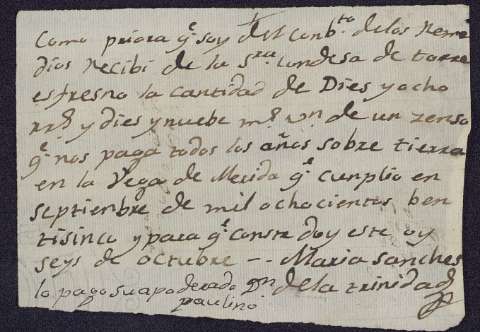 Como priora qe soy del Conbto de los Reme
dios Recibi de la Sra Condesa de torre
esfresno la cantidad de Dies y ocho
rrs y dies y nuebe ms vn de un zenso
qe nos paga todos los años sobre tierra
en la Vega de Merida qe cunplio en
septiembre de mil ochocientos ben
tisinco y para qe conste doy este oy
seys de octubre -- Maria sanches
lo pago su apoderado Dn de la trinidad
paulino